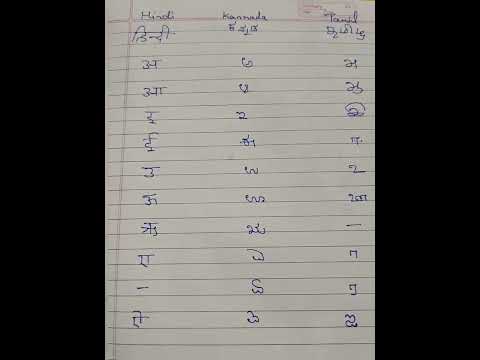 Hindi Kannada Tamil
हिन्दी ಕನ್ನಡ தமிழ்
अ ಅ அ
आ ಆ ஆ
इ ಇ இ
ई ಈ ஈ
उ ಉ உ
ऊ ಊ ஊ
ऋ ಋ —
ए ಎ எ
— ಏ ஏ
ऐ ಐ ஐ